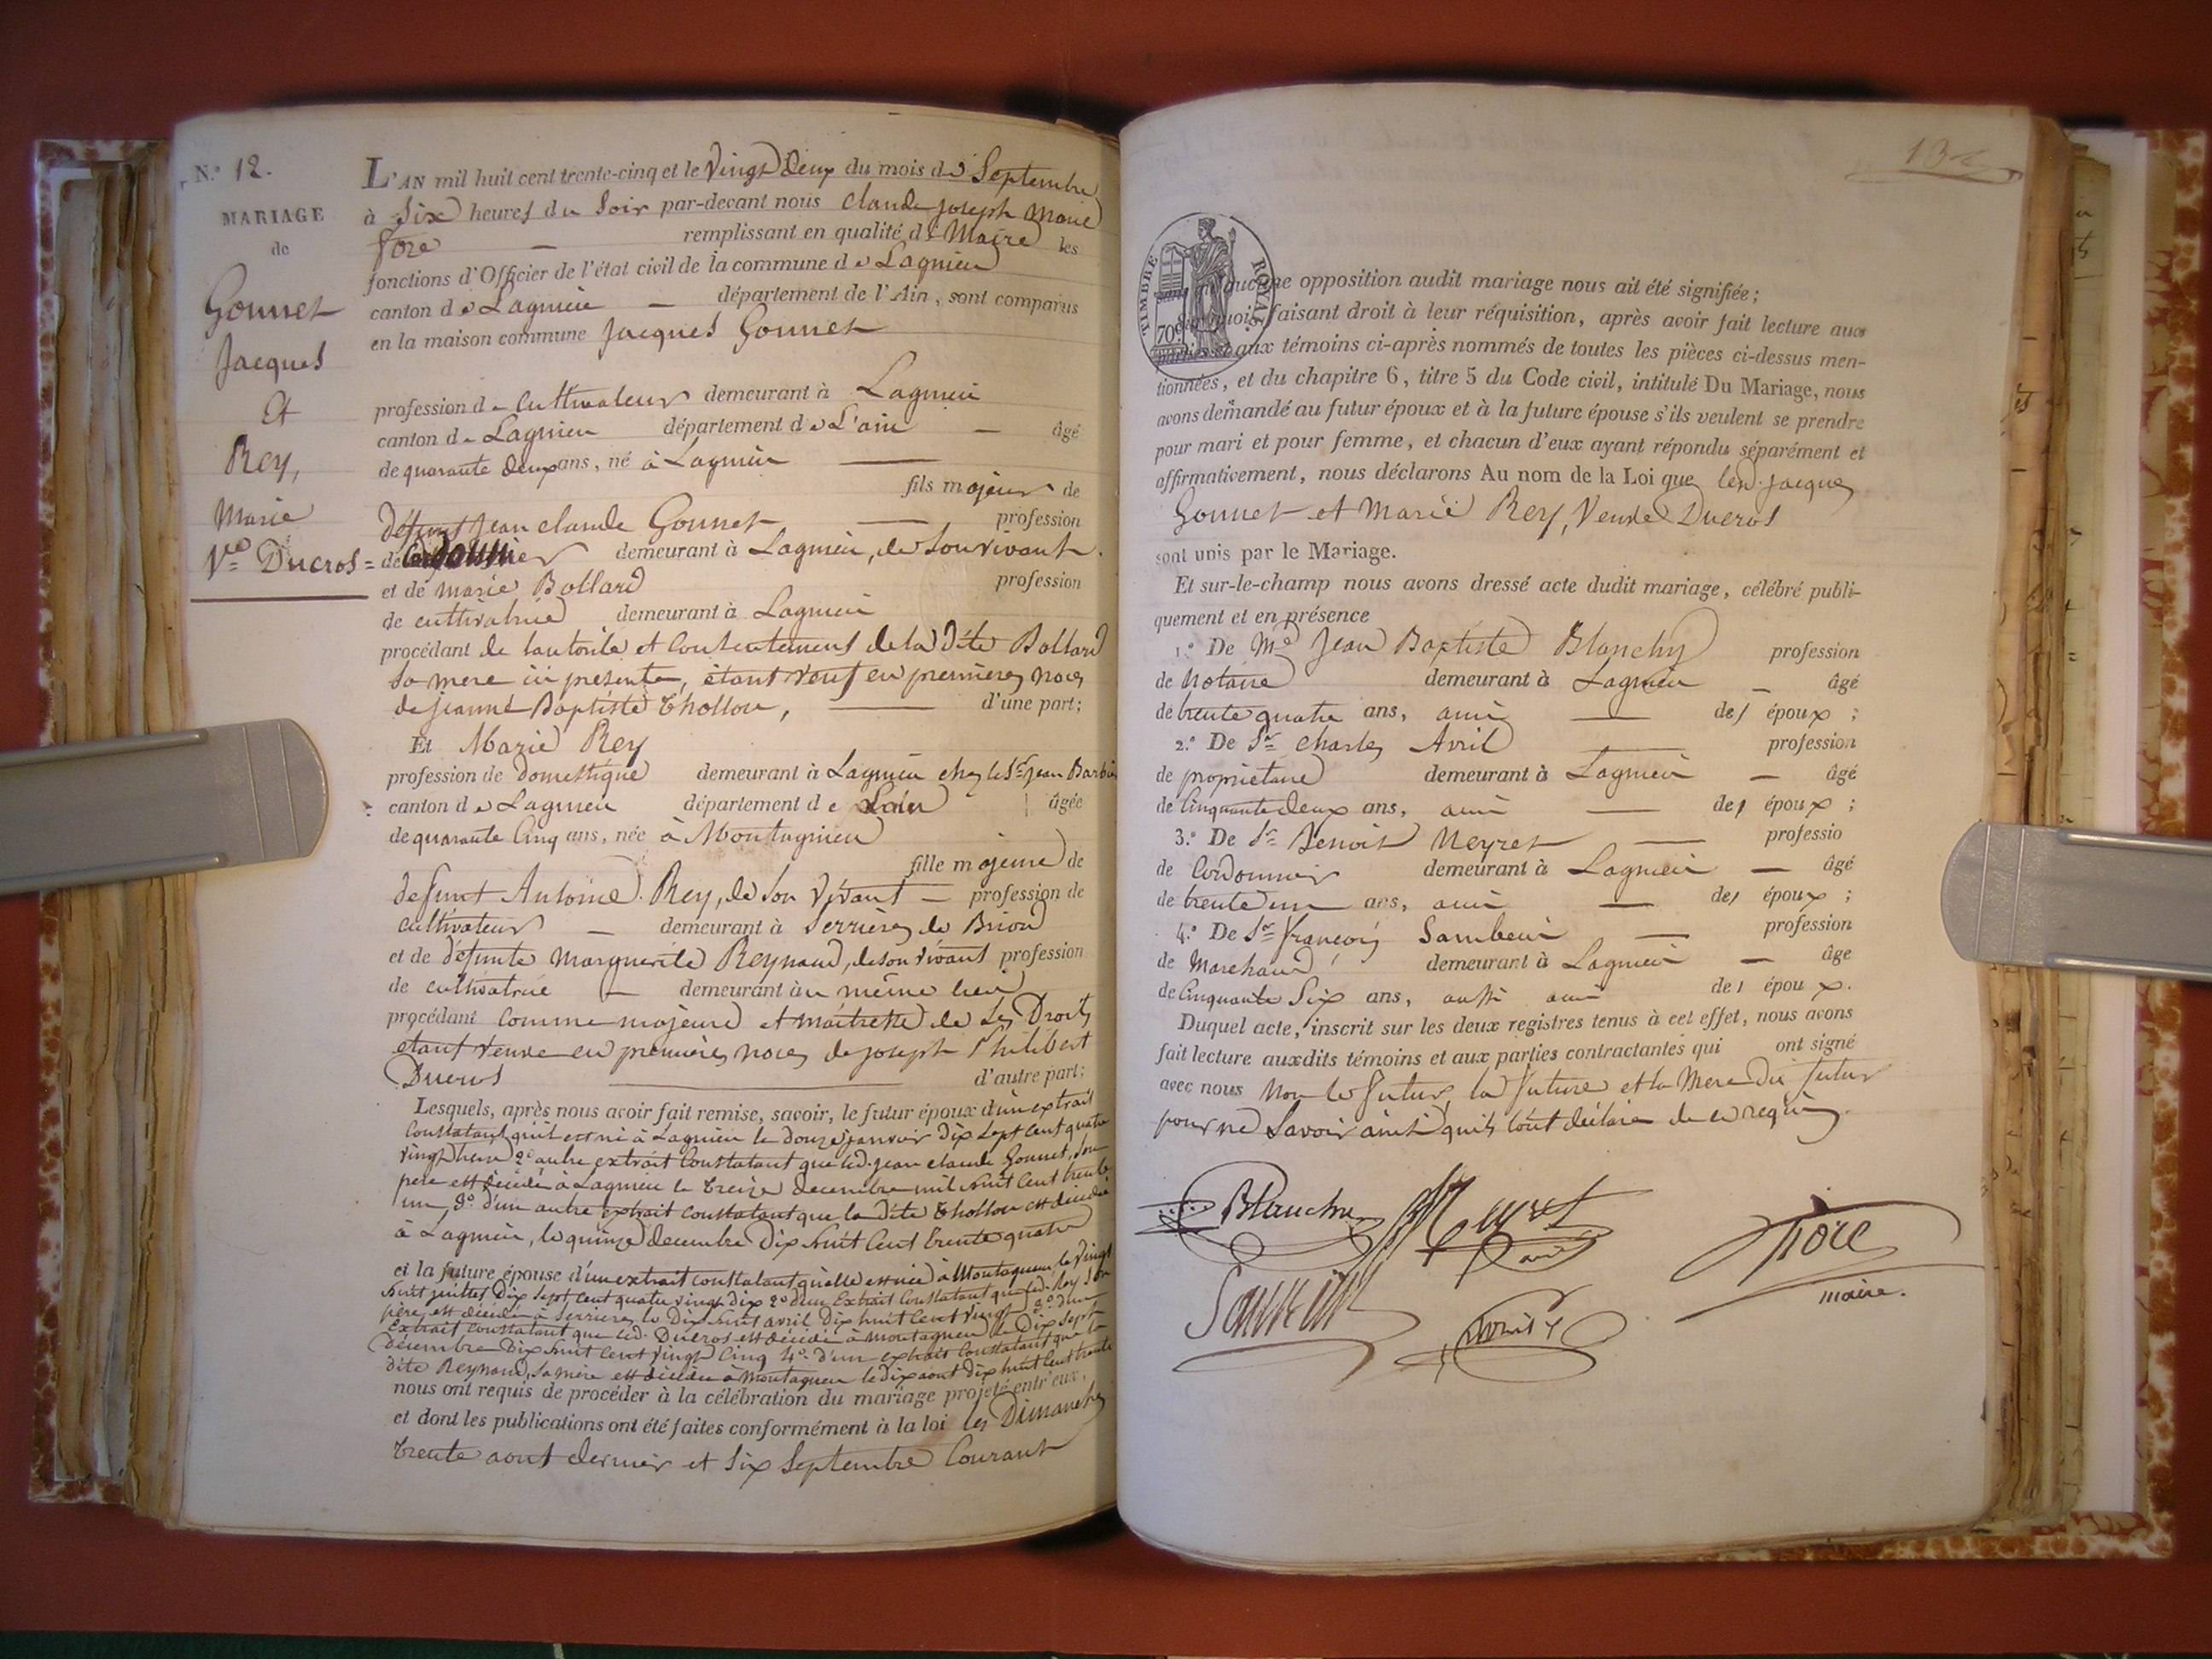 N.º 12.
MARIAGE
de
Gonnet
Jacques
Et
Rey,
Marie
Vᵉ Ducros =
L'AN mil huit cent trente-cinq et le vingt deux du mois de Septembre
à Six heures du Soir par-devant nous Claude Joseph Marie
remplissant en qualité de Maire les
fonctions d'Officier de l'état civil de la commune de Lagnieu
canton de Lagnieu — département de l'Ain, sont comparus
en la maison commune Jacques Gonnet
profession de Cultivateur demeurant à Lagnieu
canton de Lagnieu département de L'ain — âgé
de quarante deux ans, né à Lagnieu —
fils majeur de
défunt Jean Claude Gonnet — profession
de Cordonnier demeurant à Lagnieu, de Son vivant.
et de Marie Bollard profession
de cultivatrice demeurant à Lagnieu
procédant de lautorité et Consentement de la dite Bollard
Sa mere ici présente, étant veuf en premières noces
de Jeanne Baptiste Thollon, — d'une part;
Et Marie Rey
profession de domestique demeurant à Lagnieu chez le Sʳ Jean
canton de Lagnieu département de Lain âgée
de quarante Cinq ans, née à Montagnieu
fille majeure de
defunt Antoine Rey, de Son vivant — profession de
Cultivateur — demeurant à Serrières de Briord
et de défunte Marguerite Reynaud, de son vivant profession
de cultivatrice — demeurant au même lieu
procédant comme majeure et maitresse de Ses Droits
etant veuve en premières noces de Joseph Philibert
Ducros — d'autre part;
Lesquels, après nous avoir fait remise, savoir, le futur époux d'un extrait
Constatant qu'il est né à Lagnieu le douze janvier dix Sept Cent quatre
vingt 2º autre extrait Constatant que led. Jean Claude Gonnet, Son
père est décédé à Lagnieu le treize decembre mil huit Cent trente
un 3º d'un autre extrait constatant que la dite Thollon est décédée
à Lagnieu, le quinze decembre dix huit Cent trente quatre
et la future épouse d'un extrait constatant qu'elle est née à Montagnieu le vingt
huit juillet dix Sept Cent quatre vingt dix 2º d'un Extrait Constatant que led. Rey Son
père est décédé à Serrières le dix huit avril dix huit Cent vingt 3º d'un
Extrait constatant que led. Ducros est décédé à Montagnieu le dix Sept
décembre dix huit Cent vingt Cinq 4º d'un extrait Constatant que la
dite Reynaud, Sa mère est décédée à Montagnieu le dix aout dix huit Cent trente
nous ont requis de procéder à la célébration du mariage projeté entr'eux,
et dont les publications ont été faites conformément à la loi les Dimanches
trente aout dernier et Six Septembre Courant
132
TIMBRE ROYAL
70ᶜ
aucune opposition audit mariage nous ait été signifiée;
faisant droit à leur réquisition, après avoir fait lecture aux
aux témoins ci-après nommés de toutes les pièces ci-dessus men-
tionnées, et du chapitre 6, titre 5 du Code civil, intitulé Du Mariage, nous
avons demandé au futur époux et à la future épouse s'ils veulent se prendre
pour mari et pour femme, et chacun d'eux ayant répondu séparément et
affirmativement, nous déclarons Au nom de la Loi que led. Jacques
Gonnet et Marie Rey, Veuve Ducros
sont unis par le Mariage.
Et sur-le-champ nous avons dressé acte dudit mariage, célébré publi-
quement et en présence
1.º De Mᵉ Jean Baptiste Blanchy profession
de Notaire demeurant à Lagnieu — âgé
de trente quatre ans, ami — des époux;
2.º De Sʳ Charles Avril — profession
de propriétaire demeurant à Lagnieu — âgé
de Cinquante deux ans, ami — des époux;
3.º De Sʳ Benoit Neyret — professio
de Cordonnier demeurant à Lagnieu — âgé
de trente un ans, ami — des époux;
4.º De Sʳ François — profession
de Marchand demeurant à Lagnieu — âgé
de Cinquante Six ans, aussi ami des époux.
Duquel acte, inscrit sur les deux registres tenus à cet effet, nous avons
fait lecture auxdits témoins et aux parties contractantes qui ont signé
avec nous non le futur, la future et la Mere du futur
pour ne Savoir ainsi quils l'ont déclaré de ce requis
Blanchy Neyret
maire.
Avril